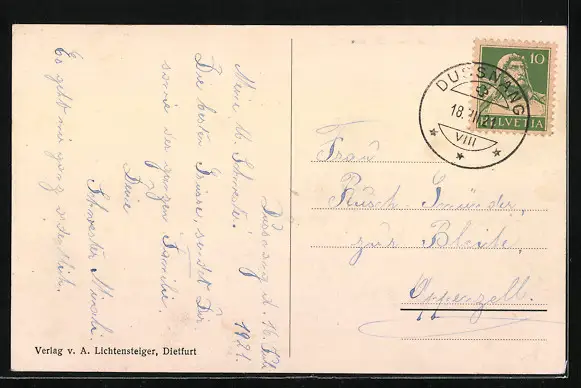 Dussnang d. 16. Juli
1921.
Meine lb. Schwester!
Die besten Grüsse, sendet Dir
sowie der ganzen Familie
Deine
Schwester
Es geht mir ganz ordentlich.
10
HELVETIA
DUSSNANG
18.
VIII
Frau
Rusch-
zur Bleiche,
Appenzell.
Verlag v. A. Lichtensteiger, Dietfurt